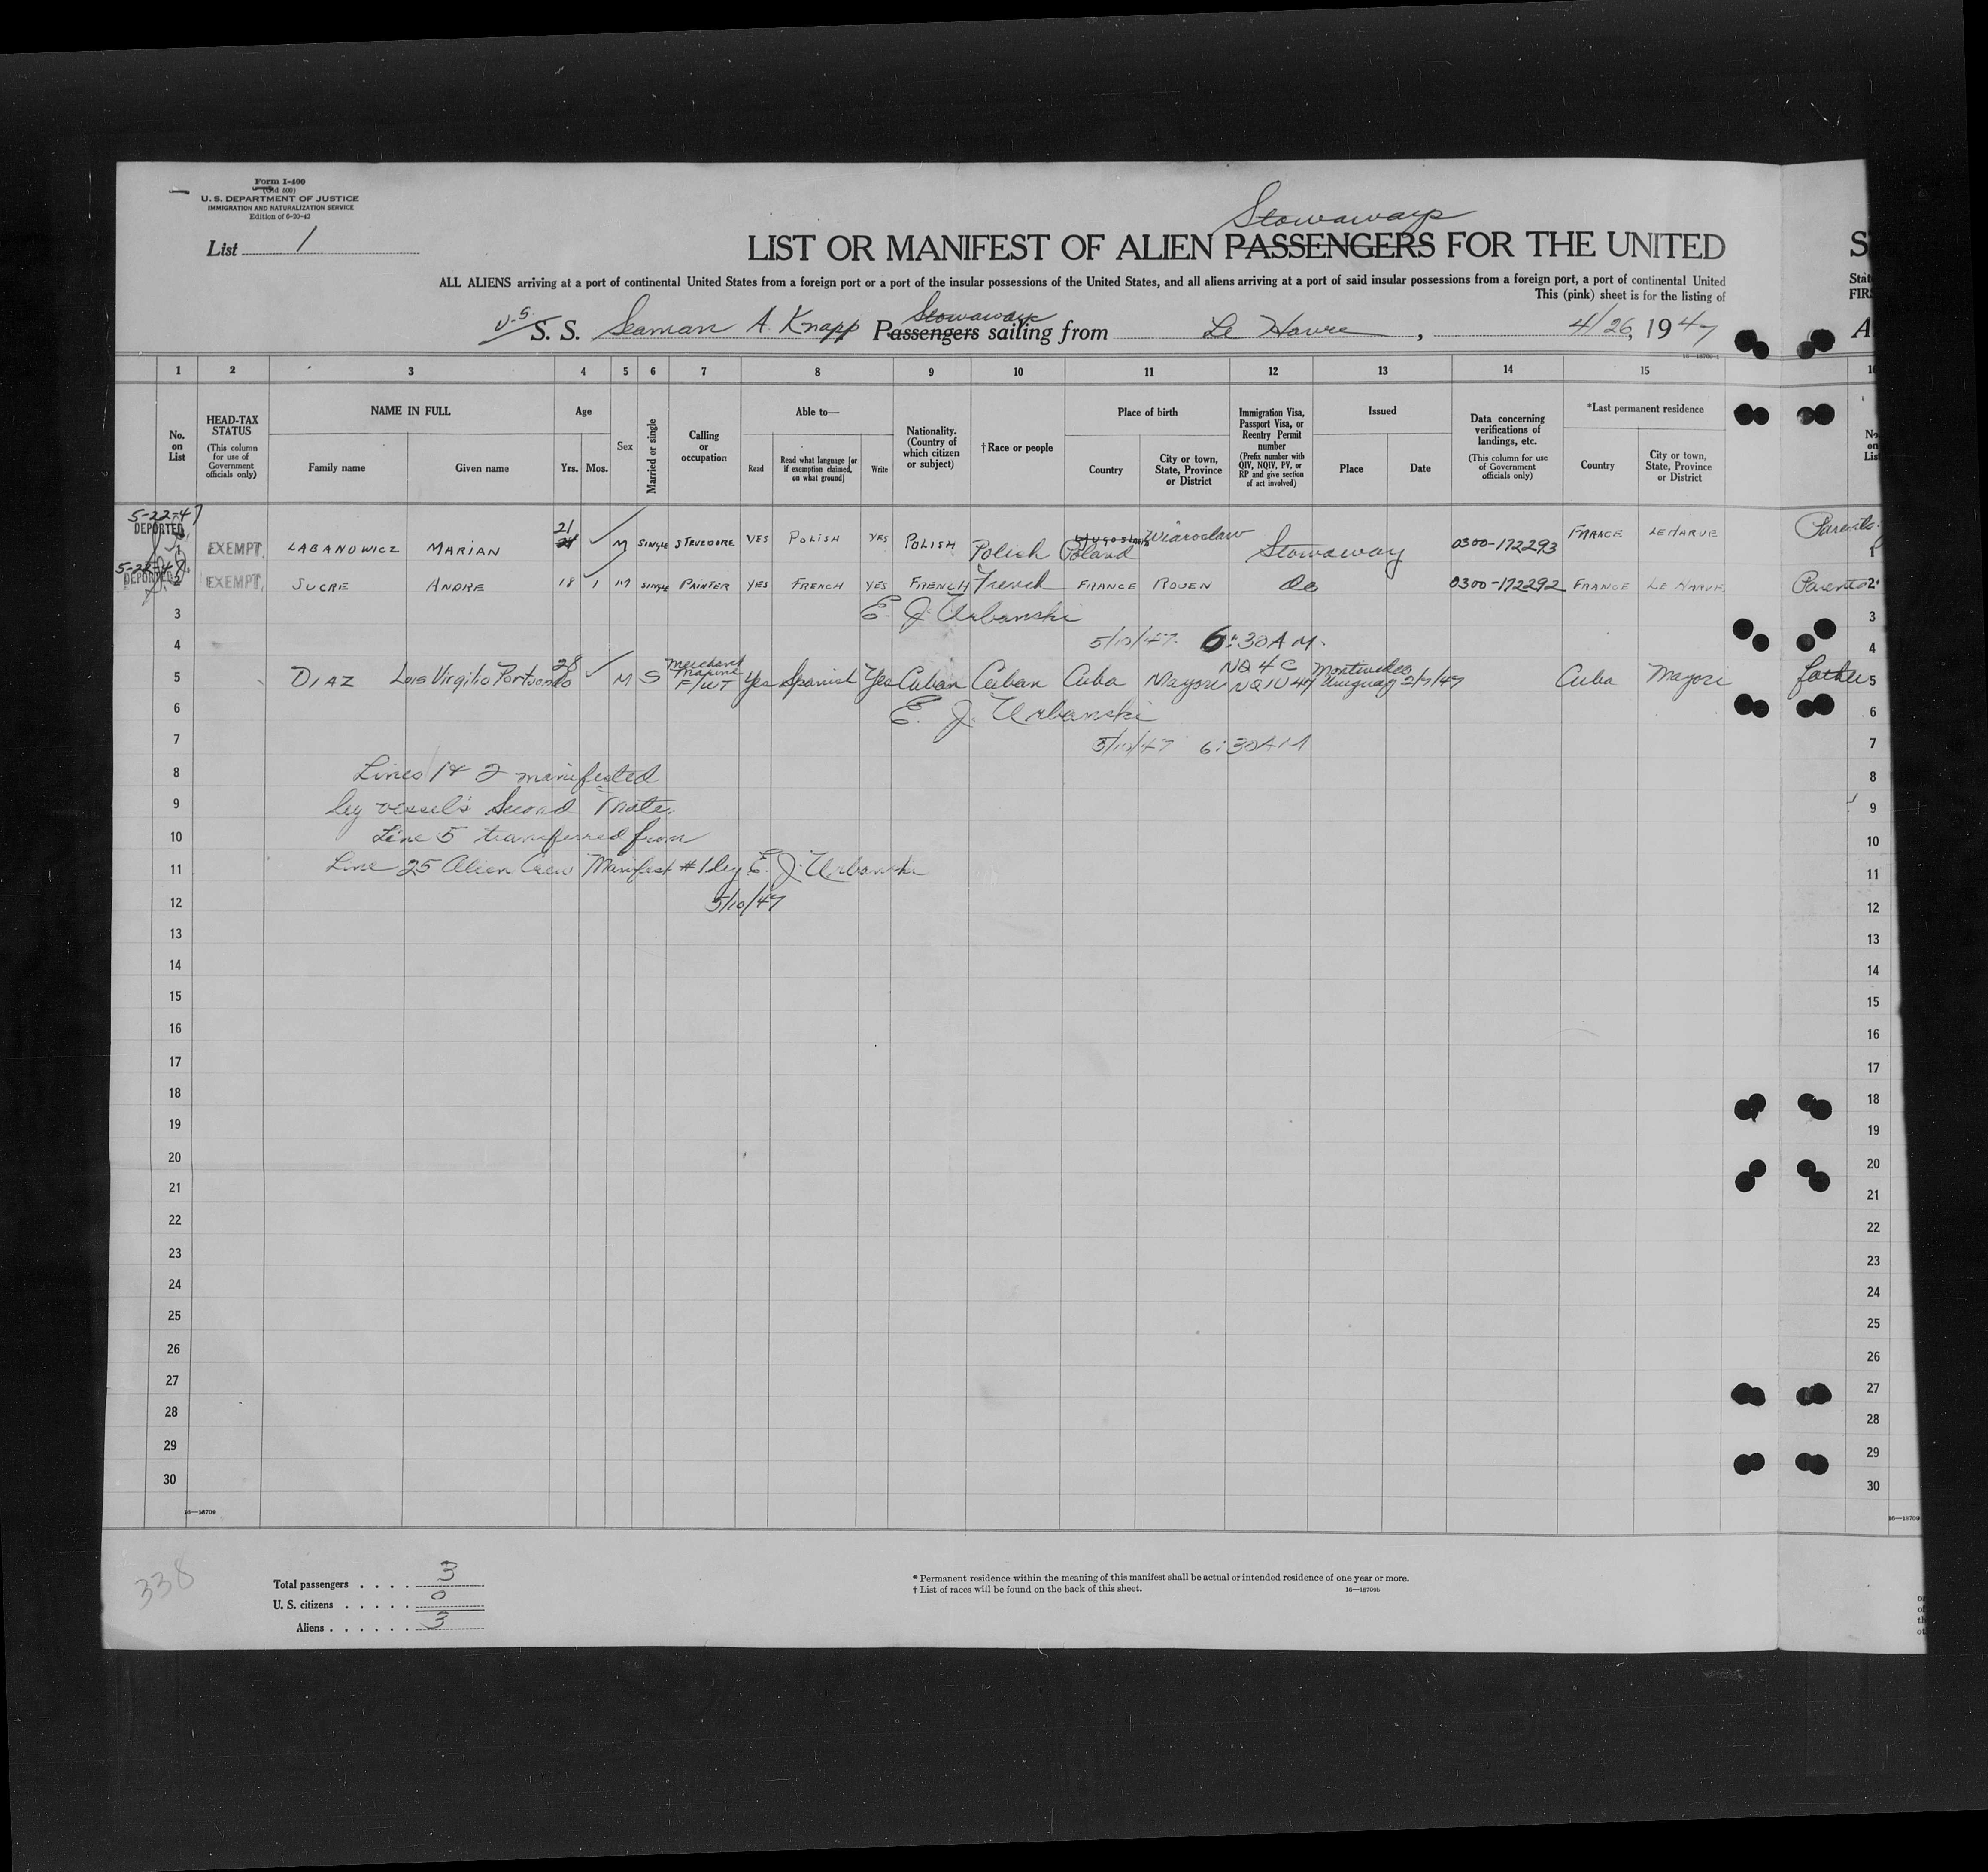 Form I-400
(Old 500)
U. S. DEPARTMENT OF JUSTICE
IMMIGRATION AND NATURALIZATION SERVICE
Edition of 6-20-42
List 1
Stowaways
LIST OR MANIFEST OF ALIEN PASSENGERS FOR THE UNITED
S
ALL ALIENS arriving at a port of continental United States from a foreign port or a port of the insular possessions of the United States, and all aliens arriving at a port of said insular possessions from a foreign port, a port of continental United
Stat
This (pink) sheet is for the listing of
FIR
Stowaways
U.S. S. S. Seaman A. Knapp Passengers sailing from Le Havre, 4/26, 1947
A
16—18709-1
1 2 3 4 5 6 7 8 9 10 11 12 13 14 15
No. on List
HEAD-TAX STATUS
(This column for use of Government officials only)
NAME IN FULL
Family name
Given name
Age
Yrs. Mos.
Sex
Married or single
Calling or occupation
Able to—
Read
Read what language [or if exemption claimed, on what ground]
Write
Nationality. (Country of which citizen or subject)
†Race or people
Place of birth
Country
City or town, State, Province or District
Immigration Visa, Passport Visa, or Reentry Permit number
(Prefix number with QIV, NQIV, PV, or RP and give section of act involved)
Issued
Place
Date
Data concerning verifications of landings, etc.
(This column for use of Government officials only)
*Last permanent residence
Country
City or town, State, Province or District
5-22-47
DEPORTED
1 EXEMPT. LABANOWICZ MARIAN 21 M SINGLE STEVEDORE YES POLISH YES POLISH Polish Poland Stowaway 0300-172293 FRANCE LEHARVE Parents
5-22-47
DEPORTED
2 EXEMPT. SUCRE ANDRE 18 1 M SINGLE PAINTER YES FRENCH YES FRENCH French FRANCE ROUEN do 0300-172292 FRANCE LE HARVE Parents 2
3 E. J. Urbanski 3
4 5/10/47 6:30 A M. 4
5 DIAZ Luis Virgilio Portuondo 28 M S Merchant Marine F/WT Yes Spanish Yes Cuban Cuban Cuba Mayori NQ 4 C NQIU 47 Montevideo Uruguay 2/7/47 Cuba Mayori father 5
6 E. J. Urbanski 6
7 5/10/47 6:30 AM 7
8 Lines 1 & 2 manifested 8
9 by vessel's Second mate. 9
10 Line 5 transferred from 10
11 Line 25 Alien Crew Manifest #1 by E. J. Urbanski 11
12 5/10/47 12
13 13
14 14
15 15
16 16
17 17
18 18
19 19
20 20
21 21
22 22
23 23
24 24
25 25
26 26
27 27
28 28
29 29
30 30
16—18709
16—18709
338
Total passengers . . . . 3
U. S. citizens . . . . . 0
Aliens . . . . . . 3
* Permanent residence within the meaning of this manifest shall be actual or intended residence of one year or more.
† List of races will be found on the back of this sheet.
16—18709b